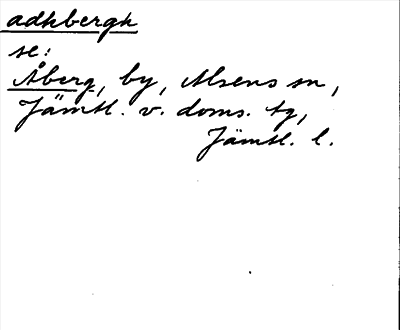 adhbergh
se:
Åberg, by, Alsens sn,
Jämtl. v. doms. tg,
Jämtl. l.